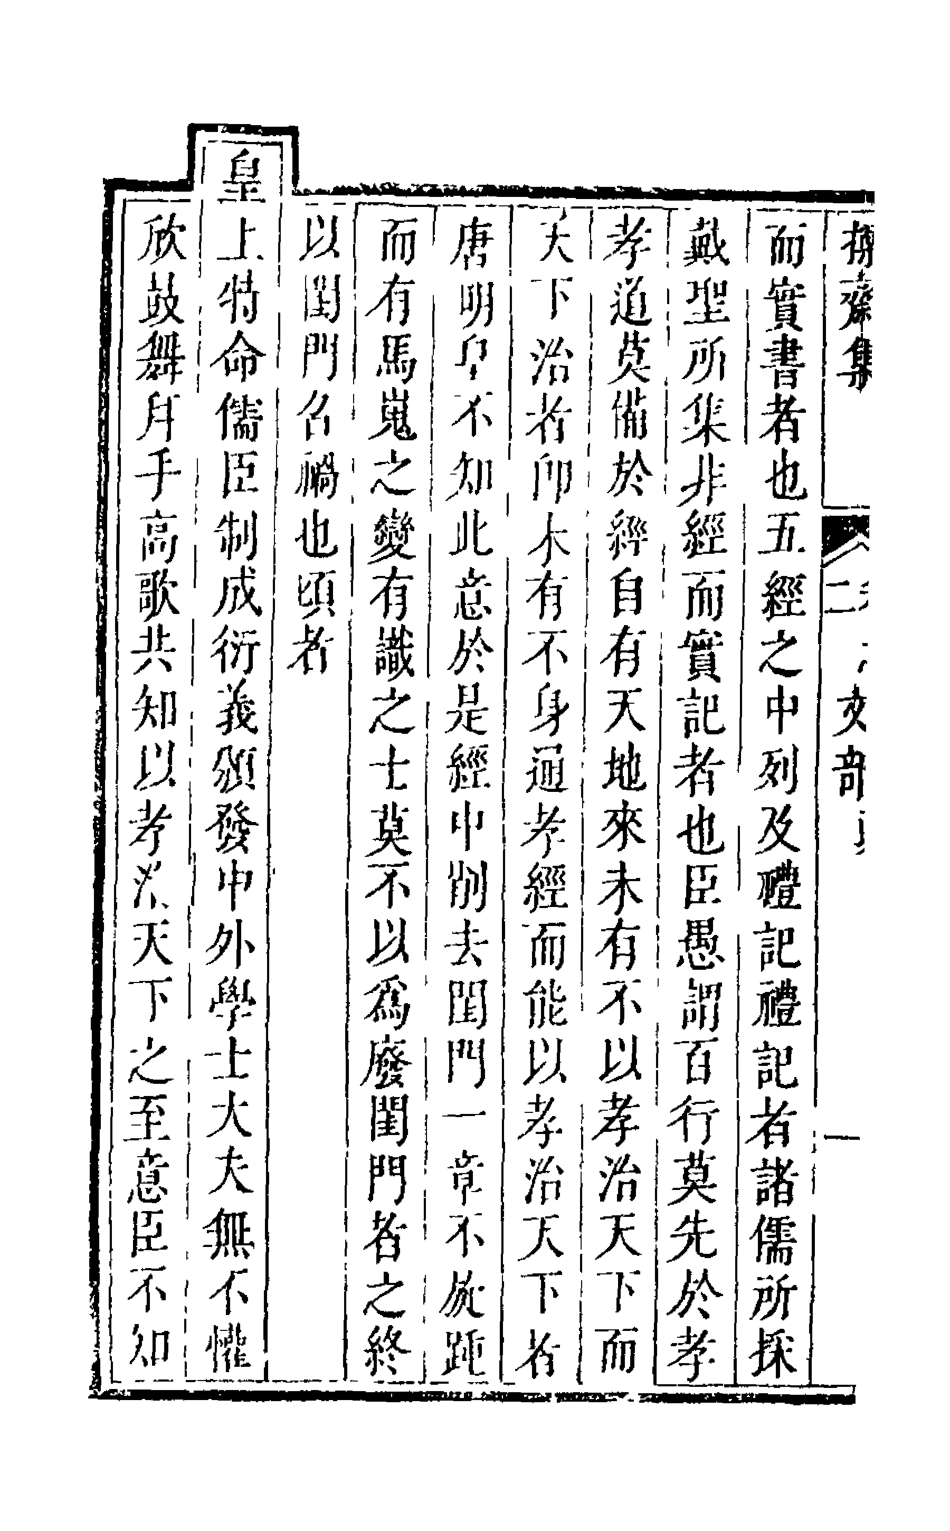 齋集
二
文部
一
而實書者也五經之中列及禮記禮記者諸儒所採
戴聖所集非經而實記者也臣愚謂百行莫先於孝
孝道莫備於經自有天地來未有不以孝治天下而
天下治者卽未有不身通孝經而能以孝治天下者
唐明皇不知此意於是經中削去閨門一章不旋踵
而有馬嵬之變有識之士莫不以爲廢閨門者之終
以閨門召禍也頃者
皇上特命儒臣制成衍義頒發中外學士大夫無不懽
欣鼓舞拜手高歌共知以孝治天下之至意臣不知